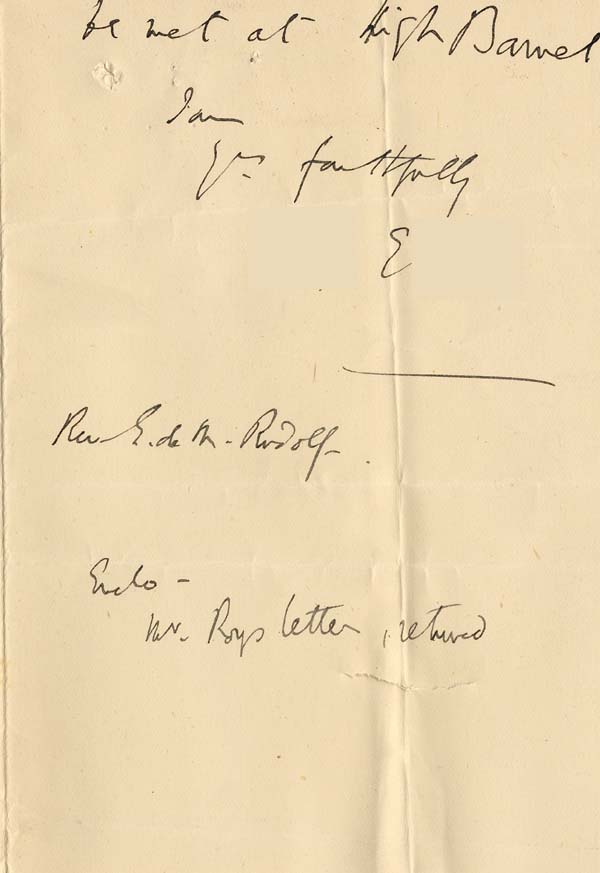 be met at High Barnet
I am
Yrs faithfully
E
Rev E. de M. Rudolf
Enclo -
Mr. Roys letter, returned